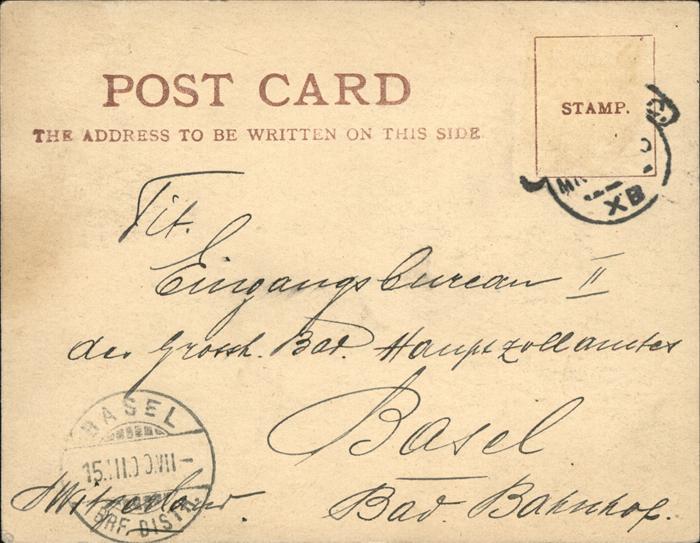 POST CARD
THE ADDRESS TO BE WRITTEN ON THIS SIDE
STAMP.
XB
Tit.
Eingangsbureau II
des Grossh. Bad. Hauptzollamtes
Basel
Bad. Bahnhof.
Switzerland.
BASEL
BRF. DIST.